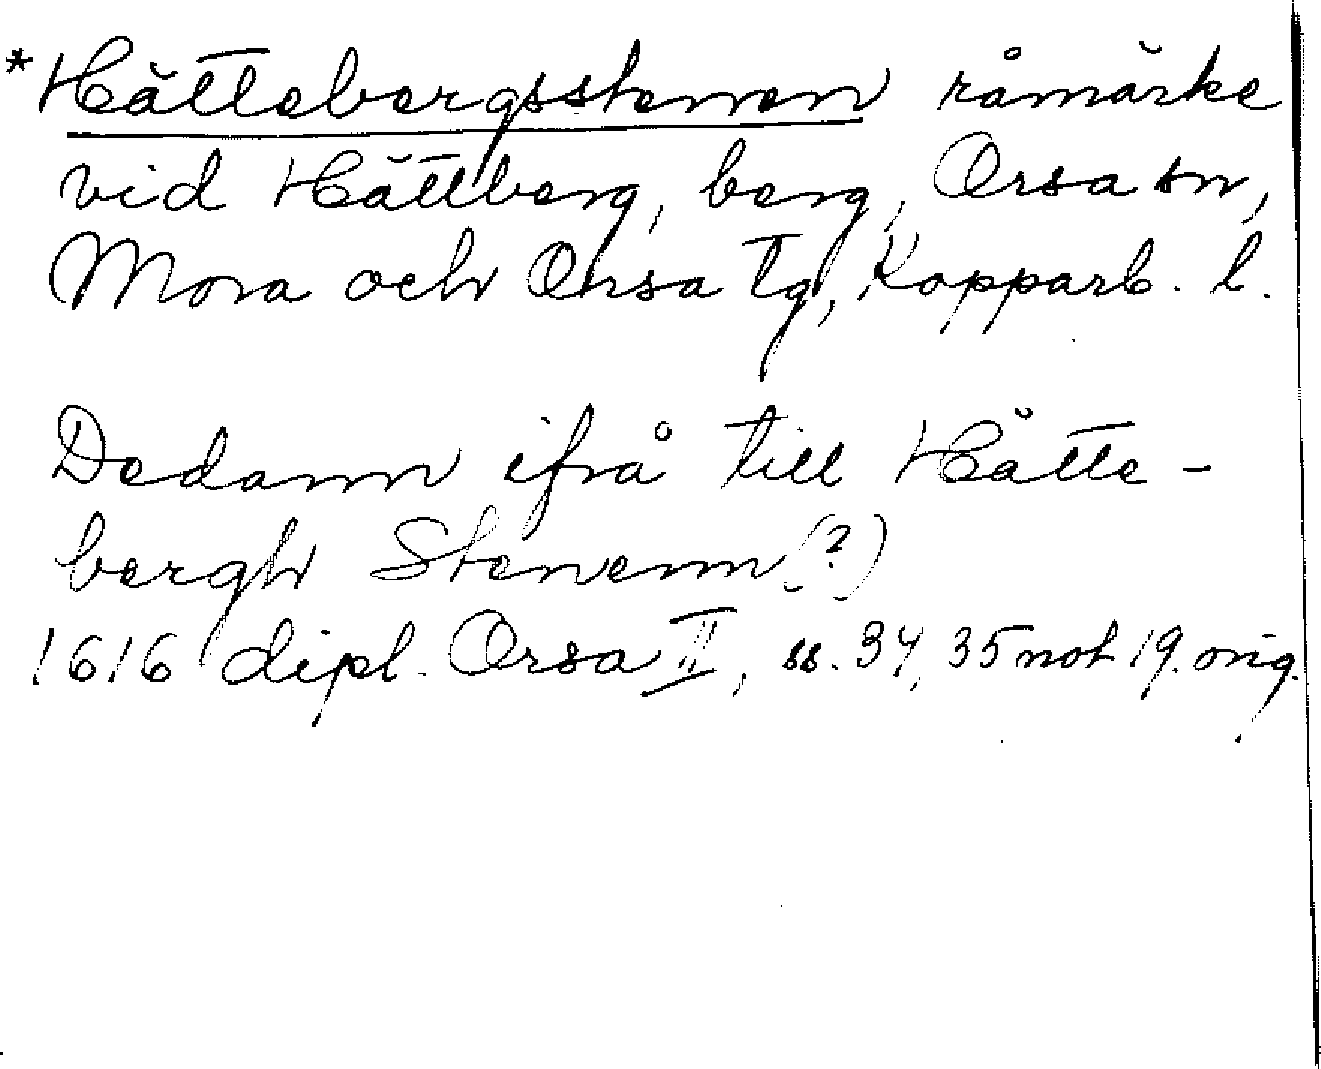 *Hättebergsstenen råmärke
vid Hättberg, berg, Orsa sn,
Mora och Orsa tg, Kopparb. l.
Dedann ifrå till Hätte-
bergh Stenenn (?)
1616 dipl. Orsa II, ss. 34, 35 not 19. orig.